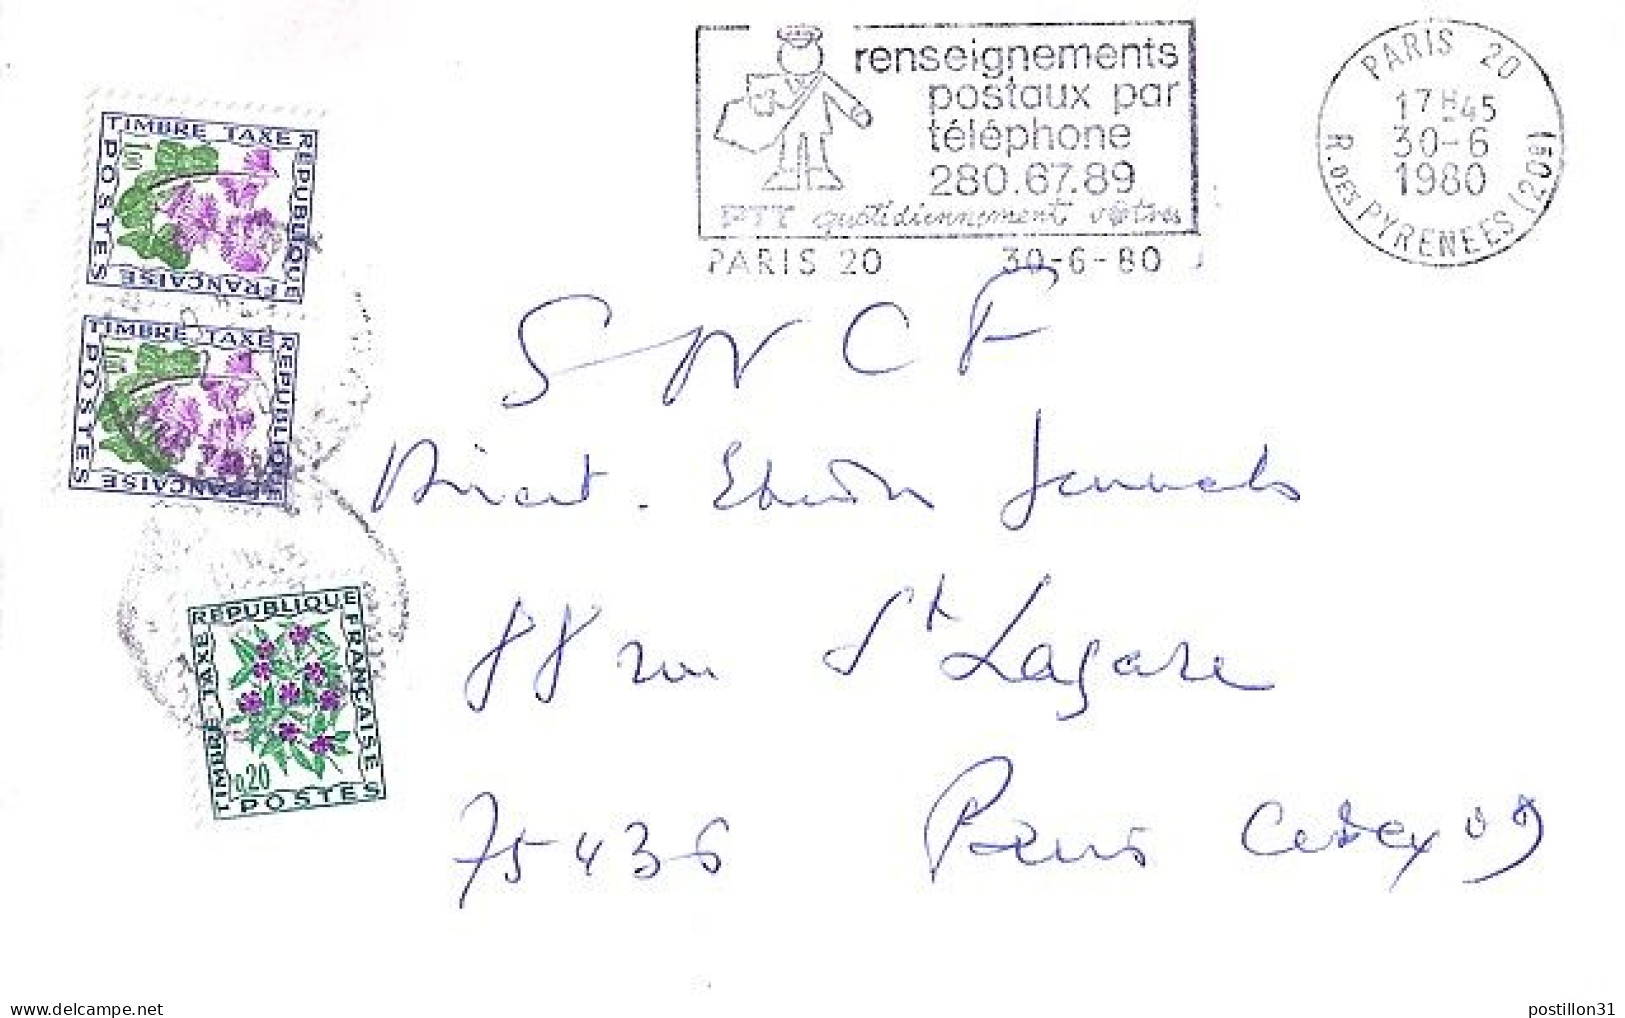 renseignements
postaux par
téléphone
280.67.89
PTT quotidiennement vôtres
PARIS 20 30-6-80
PARIS 20
17H45
30-6
1980
R. DES PYRENEES (20E)
TIMBRE TAXE
REPUBLIQUE
FRANÇAISE
POSTES
1,00
TIMBRE TAXE
REPUBLIQUE
FRANÇAISE
POSTES
1,00
REPUBLIQUE
FRANÇAISE
TIMBRE TAXE
0,20
POSTES
SNCF
88 rue St Lazare
75436 Paris Cedex 09
©Delcampe
postillon31